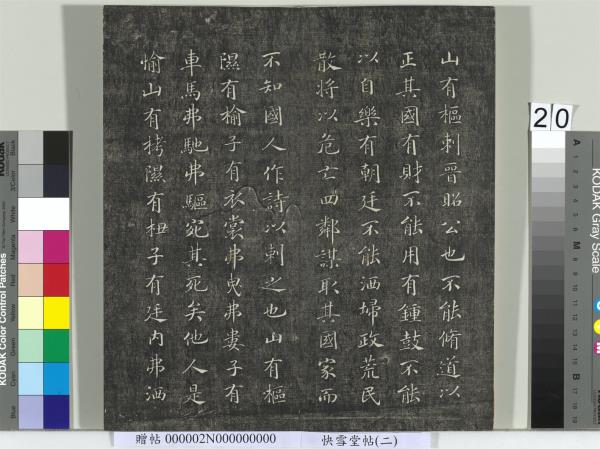 山有樞刺晉昭公也不能脩道以
正其國有財不能用有鍾鼓不能
以自樂有朝廷不能洒埽政荒民
散將以危亡四鄰謀取其國家而
不知國人作詩以刺之也山有樞
隰有榆子有衣裳弗曳弗婁子有
車馬弗馳弗驅宛其死矣他人是
愉山有栲隰有杻子有廷內弗洒
20
贈帖 000002N000000000
快雪堂帖(二)
KODAK Color Control Patches
Blue
Cyan
Green
Yellow
Red
Magenta
White
3/Color
Black
KODAK Gray Scale
A
1
2
3
4
5
6
M
8
9
10
11
12
13
14
15
B
17
18
19